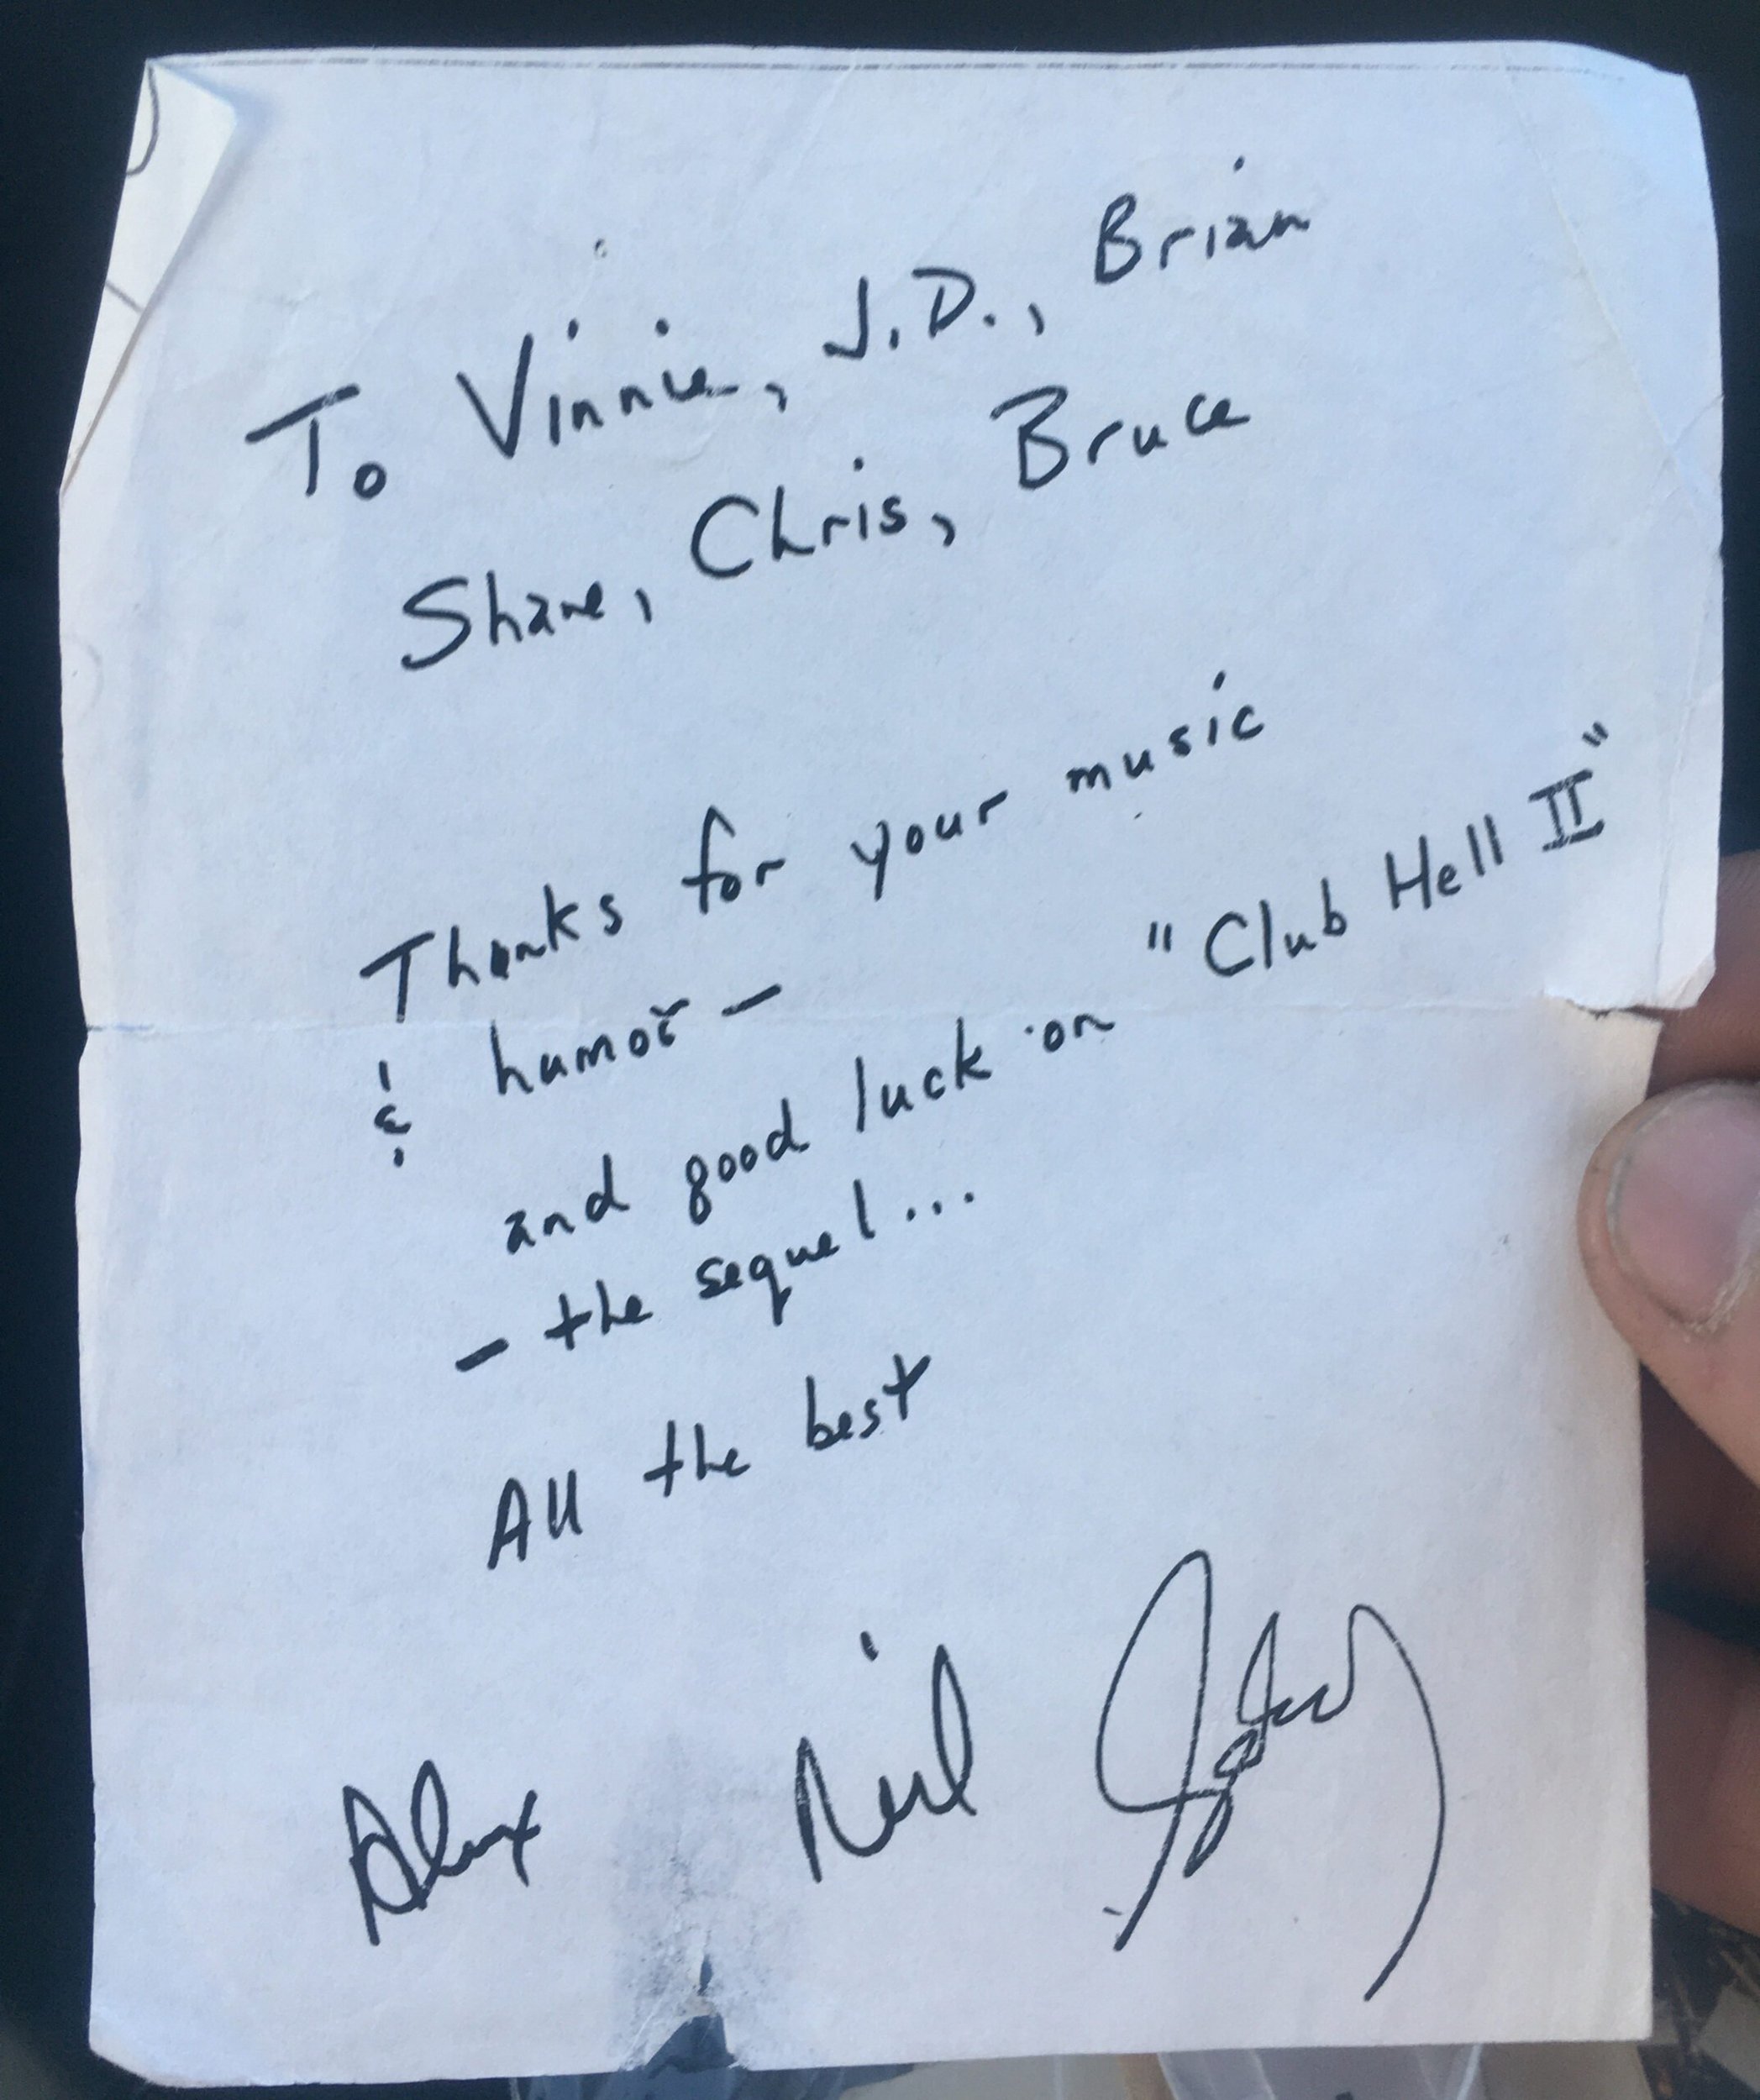 To Vinnie, J.D., Brian
Shane, Chris, Bruce
Thanks for your music
& humor –
and good luck on "Club Hell II"
– the sequel...
All the best
Alex Neil